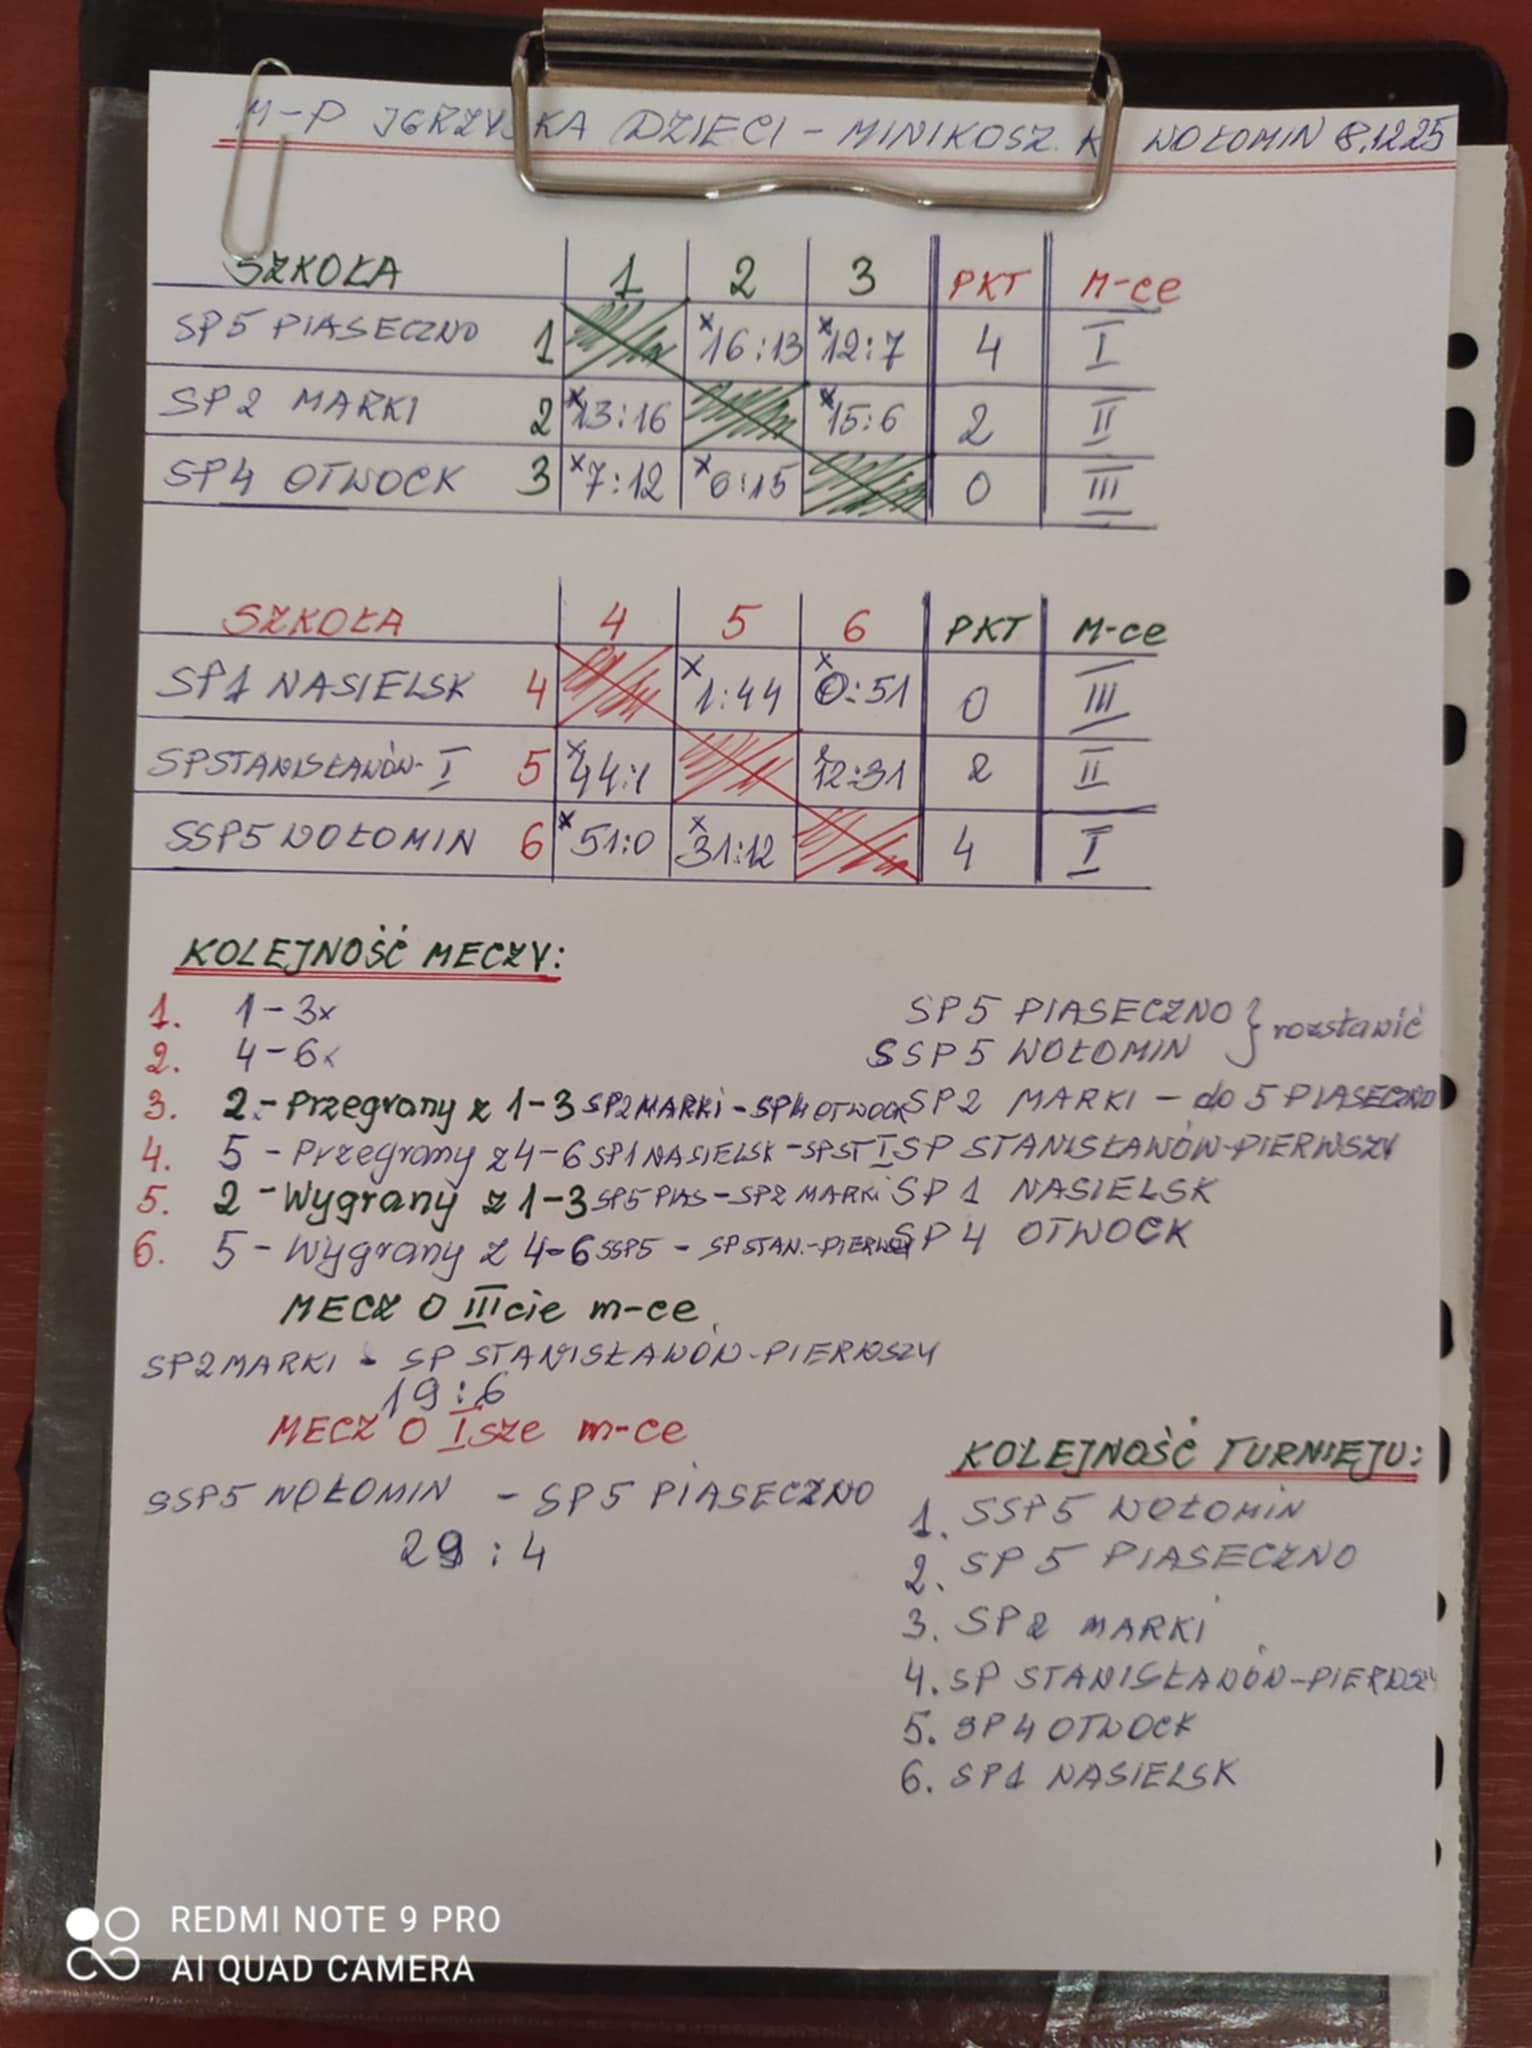 M-P IGRZYSKA DZIECI - MINIKOSZ. K WOŁOMIN 8.12.25
SZKOŁA 1 2 3 PKT M-ce
SP5 PIASECZNO 1 x16:13 x12:7 4 I
SP2 MARKI 2 x13:16 x15:6 2 II
SP4 OTWOCK 3 x7:12 x6:15 0 III
SZKOŁA 4 5 6 PKT M-ce
SP1 NASIELSK 4 x1:44 x0:51 0 III
SPSTANISŁAWÓW-I 5 x44:1 12:31 2 II
SSP5 WOŁOMIN 6 x51:0 x31:12 4 I
KOLEJNOŚĆ MECZY:
1. 1-3x
2. 4-6x
3. 2.- Przegrany z 1-3 SP2MARKI - SP4 OTWOCK
4. 5 - Przegrany z 4-6 SP1 NASIELSK - SPST I
5. 2 - Wygrany z 1-3 SP5 PIAS - SP2 MARKI
6. 5 - Wygrany z 4-6 SSP5 - SP STAN.-PIERWSZY
SP5 PIASECZNO } rozstawić
SSP5 WOŁOMIN
SP2 MARKI - do 5 PIASECZNO
SP STANISŁAWÓW-PIERWSZY
SP 1 NASIELSK
SP 4 OTWOCK
MECZ O IIIcie m-ce
SP2MARKI - SP STANISŁAWÓW-PIERWSZY
19:6
MECZ O Isze m-ce
SSP5 WOŁOMIN - SP5 PIASECZNO
29:4
KOLEJNOŚĆ TURNIEJU:
1. SSP5 WOŁOMIN
2. SP5 PIASECZNO
3. SP2 MARKI
4. SP STANISŁAWÓW-PIERWSZY
5. SP4 OTWOCK
6. SP1 NASIELSK
REDMI NOTE 9 PRO
AI QUAD CAMERA